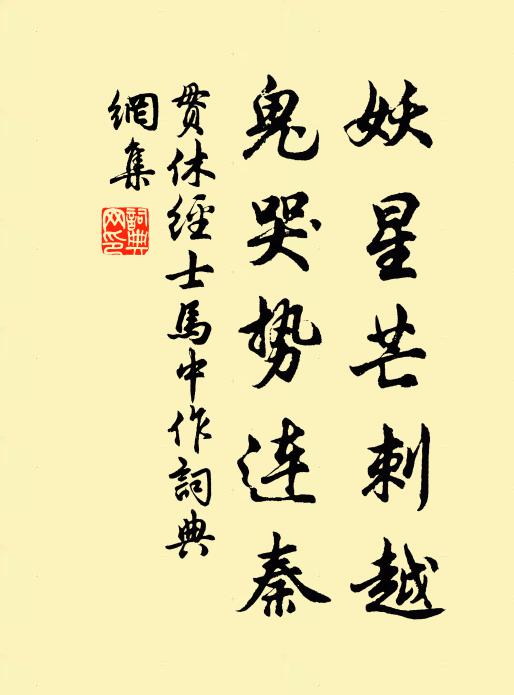 妖星芒刺越
鬼哭势连秦
贯休經士馬中作詞典
網集
詞典
网印